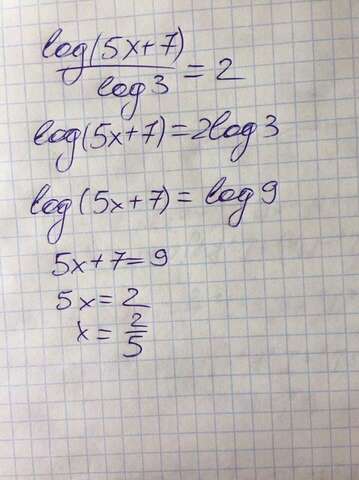 log(5x+7)
log3 = 2
log(5x+7)=2log3
log(5x+7)=log9
5x+7=9
5x=2
x=2/5